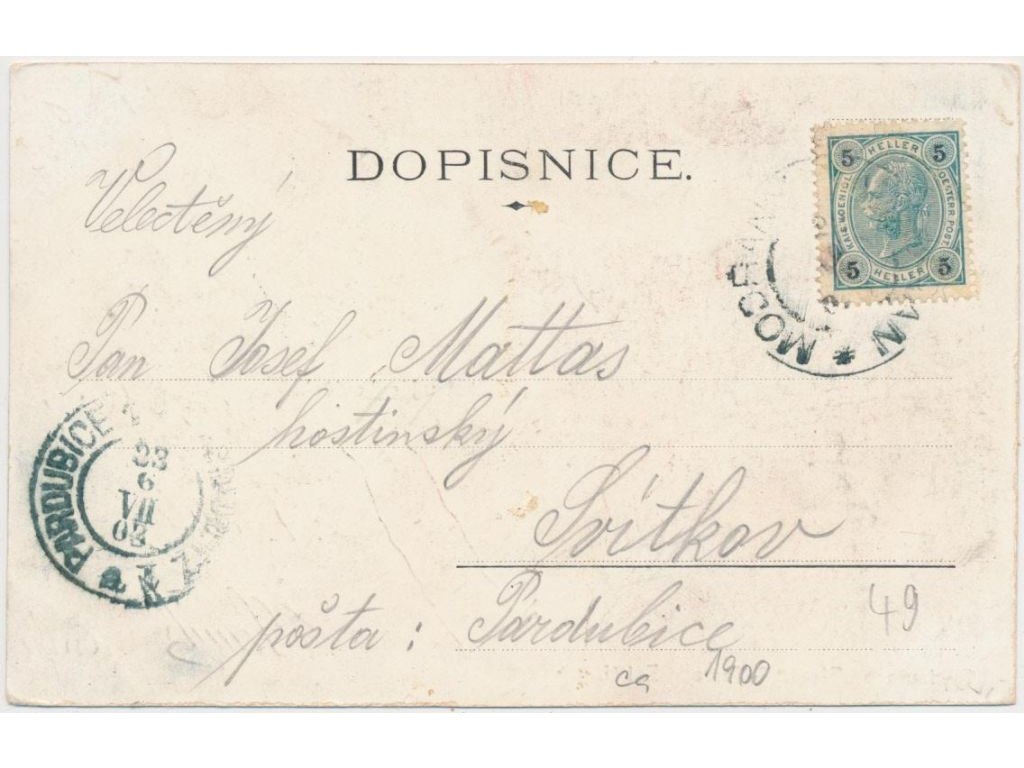 DOPISNICE.
Velectěný
Pan Josef Mattas
hostinský
Svítkov
pošta : Pardubice
49
ca 1900
5 HELLER 5
KAIS. KOENIGL. OESTERR. POST.
5 HELLER 5
MODŘAN
PARDUBICE
6
VII
02